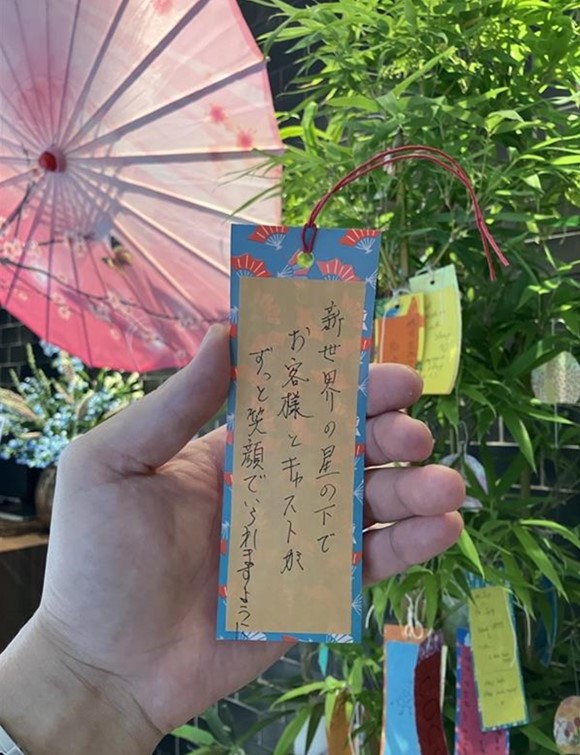 新世界の星の下で
お客様とキャストが
ずっと笑顔でいられますように